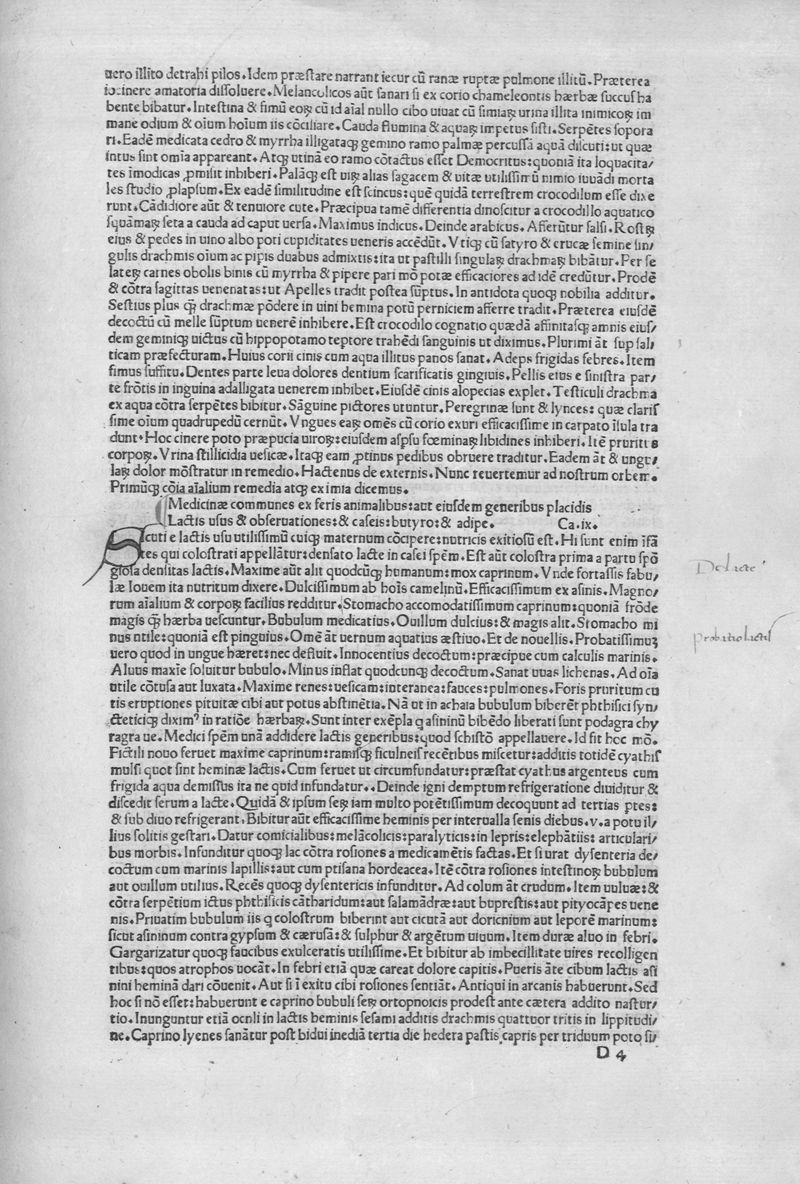 uero illito detrahi pilos. Idem præstare narrant iecur cū ranæ ruptæ pulmone illitū. Præterea
iocinere amatoria dissoluere. Melancolicos aūt sanari si ex corio chameleontis hærbæ succus ha
bente bibatur. Intestina & fimū eoꝝ cū id aīal nullo cibo uiuat cū simiaꝝ urina illita inimicoꝝ im
mane odium & oīum hoīum iis cōciliare. Cauda flumina & aquaꝝ impetus sisti. Serpētes sopora
ri. Eadē medicata cedro & myrrha illigataqꝫ gemino ramo palmæ percussā aquā discuti: ut quæ
intus sint omīa appareant. Atqꝫ utinā eo ramo cōtactus esset Democritus: quoniā ita loquacita/
tes īmodicas ꝓmisit inhiberi. Palāqꝫ est uiꝝ alias sagacem & uitæ utilissimū nimio iuuādi morta
les studio ꝓlapsum. Ex eadē similitudine est scincus: quē quidā terrestrem crocodilum esse dixe
runt. Cādidiore aūt & tenuiore cute. Præcipua tamē differentia dinoscitur a crocodillo aquatico
squāmaꝝ seta a cauda ad caput uersa. Maximus indicus. Deinde arabicus. Afferūtur salsi. Rostꝝ
eius & pedes in uino albo poti cupiditates ueneris accēdūt. Vtiqꝫ cū satyro & erucæ semine sin/
gulis drachmis oīum ac pipis duabus admixtis: ita ut pastilli singulaꝝ drachmaꝝ bibātur. Per se
lateꝝ carnes obolis binis cū myrrha & pipere pari mō potæ efficaciores ad idē credūtur. Prodē
& cōtra sagittas uenenatas: ut Apelles tradit postea sūptus. In antidota quoqꝫ nobilia additur.
Sestius plus qꝫ drachmæ pōdere in uini hemina potū perniciem afferre tradit. Præterea eiusdē
decoctū cū melle sūptum uenerē inhibere. Est crocodilo cognatio quædā affinitasqꝫ amnis eius/
dem geminiqꝫ uictus cū hippopotamo teptore trahēdi sanguinis ut diximus. Plurimi āt sup sal/
ticam præfecturam. Huius corii cinis cum aqua illitus panos sanat. Adeps frigidas febres. Item
fimus suffitu. Dentes parte leua dolores dentium scarificatis gingiuis. Pellis eius e sinistra par/
te frōtis in inguina adalligata uenerem inhibet. Eiusdē cinis alopecias explet. Testiculi drachma
ex aqua cōtra serpētes bibitur. Sāguine pictores utuntur. Peregrinæ sunt & lynces: quæ claris
sime oīum quadrupedū cernūt. Vngues eaꝝ omēs cū corio exuri efficacissime in carpato isula tra
dunt. Hoc cinere poto præpucia uiroꝝ: eiusdem aspsu fœminaꝝ libidines inhiberi. Itē pruritus
corpoꝝ. Vrina stillicidia uesicæ. Itaqꝫ eam ꝓtinus pedibus obruere traditur. Eadem āt & ungu/
laꝝ dolor mōstratur in remedio. Hactenus de externis. Nunc reuertemur ad nostrum orbem.
Primūqꝫ cōia aīalium remedia atqꝫ eximia dicemus.
Medicinæ communes ex feris animalibus: aut eiusdem generibus placidis
Lactis usus & obseruationes: & caseis: butyro: & adipe. Ca.ix.
Sicuti e lactis usu utilissimū cuiqꝫ maternum cōcipere: nutricis exitiosū est. Hi sunt enim īfā
tes qui colostrati appellātur: densato lacte in casei spēm. Est aūt colostra prima a partu spō
giosa densitas lactis. Maxime aūt alit quodcūqꝫ humanum: mox caprinum. Vnde fortassis fabu/
læ Iouem ita nutritum dixere. Dulcissimum ab hoīs camelinū. Efficacissimum ex asinis. Magno
rum aīalium & corpoꝝ facilius redditur. Stomacho accomodatissimum caprinum: quoniā frōde
magis qꝫ hærba uescuntur. Bubulum medicatius. Ouillum dulcius: & magis alit. Stomacho mi
nus utile: quoniā est pinguius. Omē āt uernum aquatius æstiuo. Et de nouellis. Probatissimuꝫ
uero quod in ungue hæret: nec defluit. Innocentius decoctum: præcipue cum calculis marinis.
Aluus maxīe soluitur bubulo. Minus inflat quodcunqꝫ decoctum. Sanat uuas lichenas. Ad oīa
utile cōtusa aut luxata. Maxime renes: uesicam: interanea: fauces: pulmones. Foris pruritum cu
tis eruptiones pituitæ cibi aut potus abstinētia. Nā ut in achaia bubulum biberēt phthisici syn/
cteticiqꝫ diximꝰ in ratiōe hærbaꝝ. Sunt inter exēpla q asininū bibēdo liberati sunt podagra chy
ragra ue. Medici spēm unā addidere lactis generibus: quod schistō appellauere. Id fit hoc mō.
Fictili nouo feruet maxime caprinum: ramisqꝫ ficulneis recētibus miscetur: additis totidē cyathis
mulsi quot sint heminæ lactis. Cum feruet ut circumfundatur: præstat cyathus argenteus cum
frigida aqua demissus ita ne quid infundatur. Deinde igni demptum refrigeratione diuiditur &
discedit serum a lacte. Quidā & ipsum seꝝ iam multo potētissimum decoquunt ad tertias ptes:
& sub diuo refrigerant. Bibitur aūt efficacissime heminis per interualla senis diebus.v.a potu il/
lius solitis gestari. Datur comicialibus: melācolicis: paralyticis: in lepris: elephātiis: articulari/
bus morbis. Infunditur quoqꝫ lac cōtra rosiones a medicamētis factas. Et si urat dysenteria de/
coctum cum marinis lapillis: aut cum ptisana hordeacea. Itē cōtra rosiones intestinoꝝ bubulum
aut ouillum utilius. Recēs quoqꝫ dysentericis infunditur. Ad colum āt crudum. Item uuluæ: &
cōtra serpētium ictus phthisicis cātharidum: aut salamādræ: aut buprestis: aut pityocāpes uene
nis. Priuatim bubulum iis q colostrum biberint aut cicutā aut doricnium aut leporē marinum:
sicut asininum contra gypsum & cærusā: & sulphur & argētum uiuum. Item duræ aluo in febri.
Gargarizatur quoqꝫ faucibus exulceratis utilissime. Et bibitur ab imbecillitate uires recolligen
tibus: quos atrophos uocāt. In febri etiā quæ careat dolore capitis. Pueris āte cibum lactis asi
nini heminā dari cōuenit. Aut si ī exitu cibi rosiones sentiāt. Antiqui in arcanis habuerunt. Sed
hoc si nō esset: habuerunt e caprino bubuli seꝝ ortopnoicis prodest ante cætera addito nastur/
tio. Inunguntur etiā ocnli in lactis heminis sesami additis drachmis quattuor tritis in lippitudi/
ne. Caprino lyenes sanātur post bidui inediā tertia die hedera pastis capris per triduum poto si/
D 4
De lacte
probatio lactis